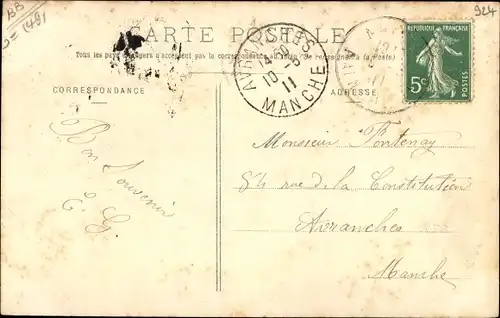 BB
924
= 1491
CARTE POSTALE
Tous les pays étrangers n'acceptent pas la correspondance au recto (Se renseigner à la Poste)
RÉPUBLIQUE FRANÇAISE
5c
POSTES
AVRANCHES
10 -3
11
MANCHE
CORRESPONDANCE
ADRESSE
Bon Souvenir
Monsieur Fontenay
54 rue de la Constitution
Avranches
Manche